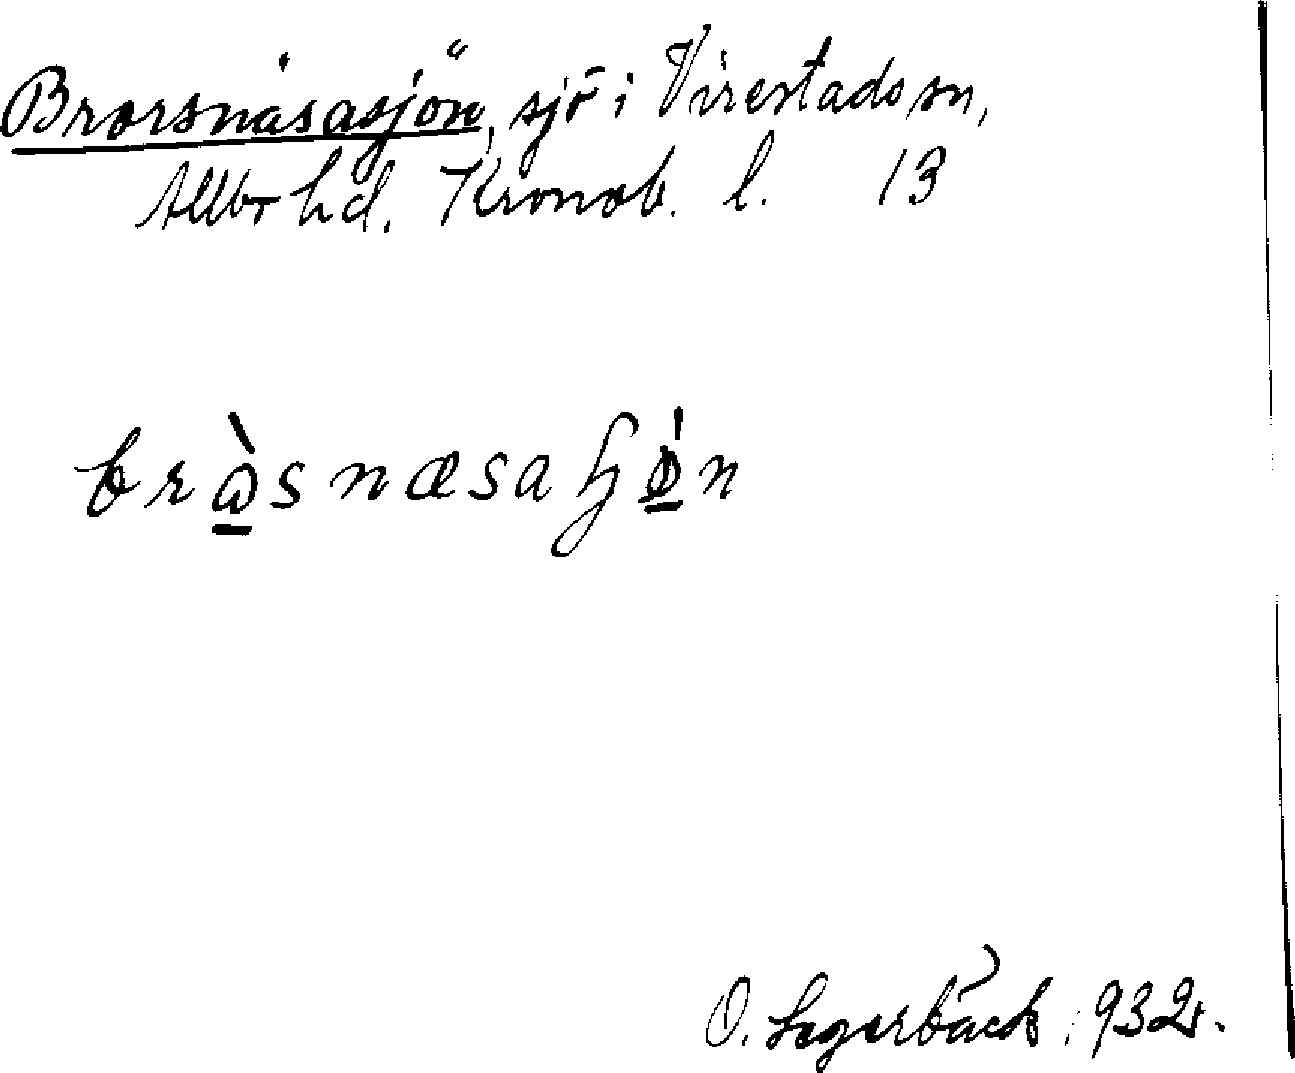 Brorsnäsasjön, sjö i Virestads sn,
Allbo hd. Kronob. l. 13
bràsnæsaʃǿn
O. Segerbäck, 932.